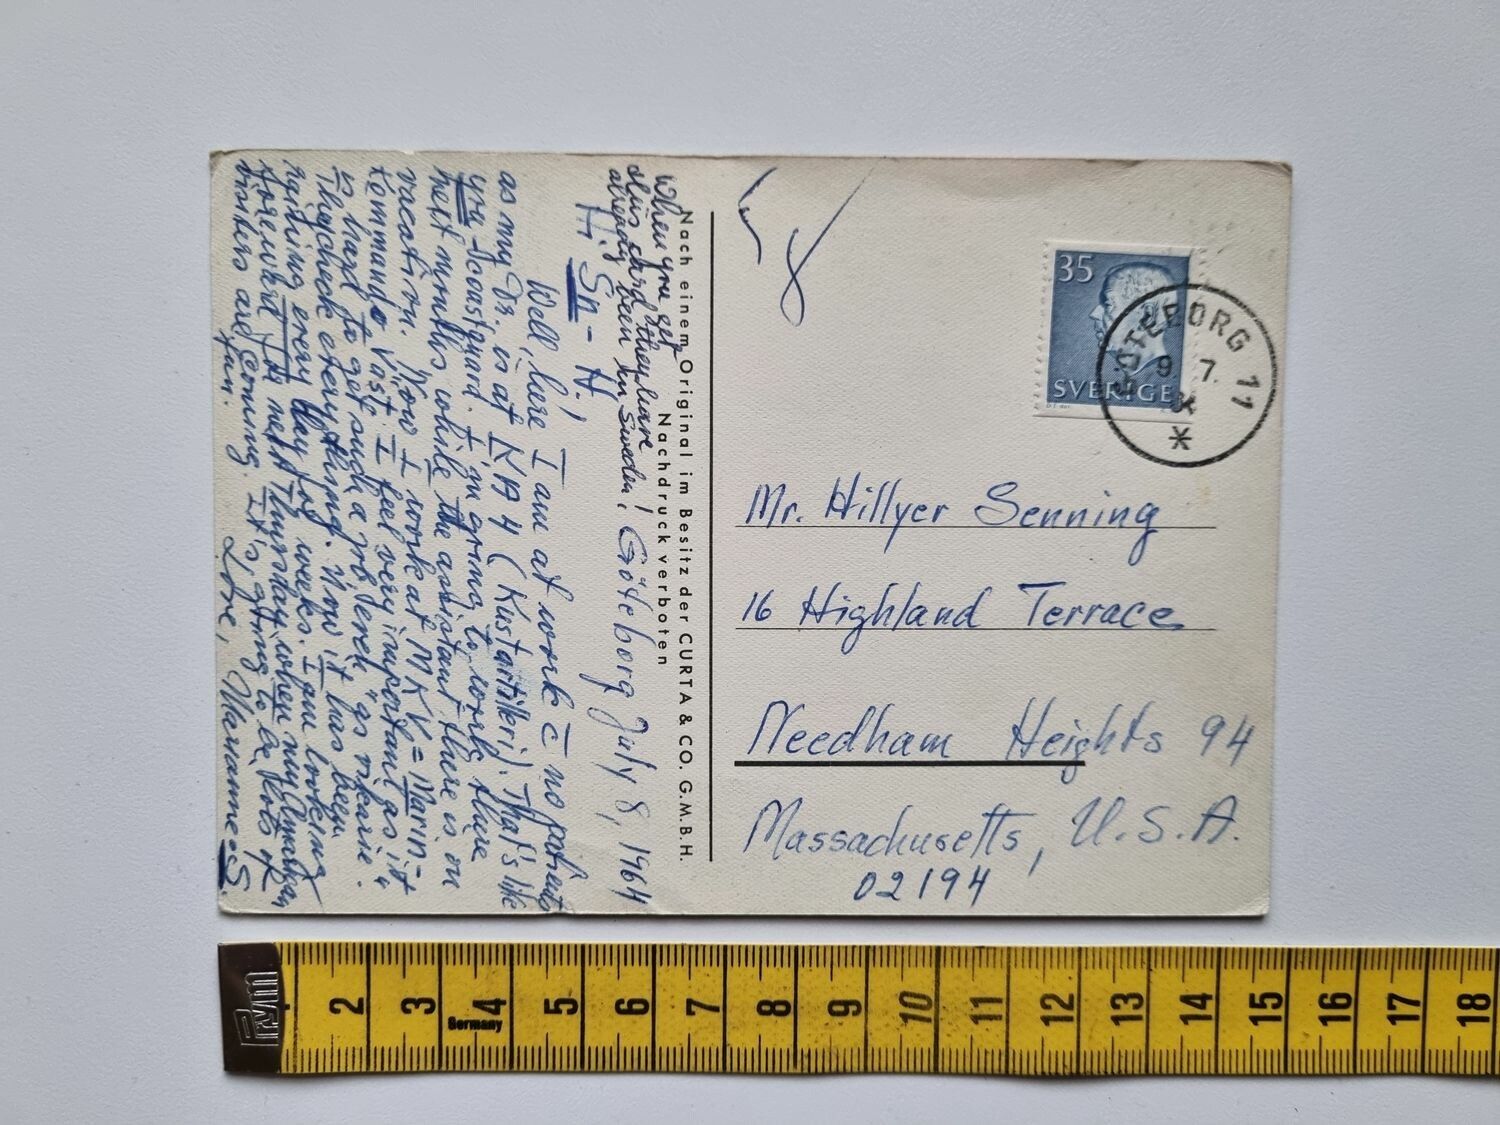 35
SVERIGE
GÖTEBORG 11
9 7.
Mr. Hillyer Senning
16 Highland Terrace
Needham Heights 94
Massachusetts, U.S.A.
02194
Nach einem Original im Besitz der CURTA & CO. G.M.B.H.
Nachdruck verboten
When you get
this card they have
already been in Sweden!
Göteborg July 8, 1964
Hi Sn-H!
Well, here I am at work c̄ no patients
as my Dr. is at KA 4 (Kustartilleri). That's like
you Coastguard. I'm going to work there
next months while the assistant there is on
vacation. Now I work at MKV = Marin-
kommando Väst. I feel very important as it
is hard to get such a job even "as
everything. Now it has been
raining every day for weeks. I am looking
forward to next Thursday when my American
visitors are coming. It's going to be lots of
fun.
Love, Marianne S.
Prym
Germany
2 3 4 5 6 7 8 9 10 11 12 13 14 15 16 17 18